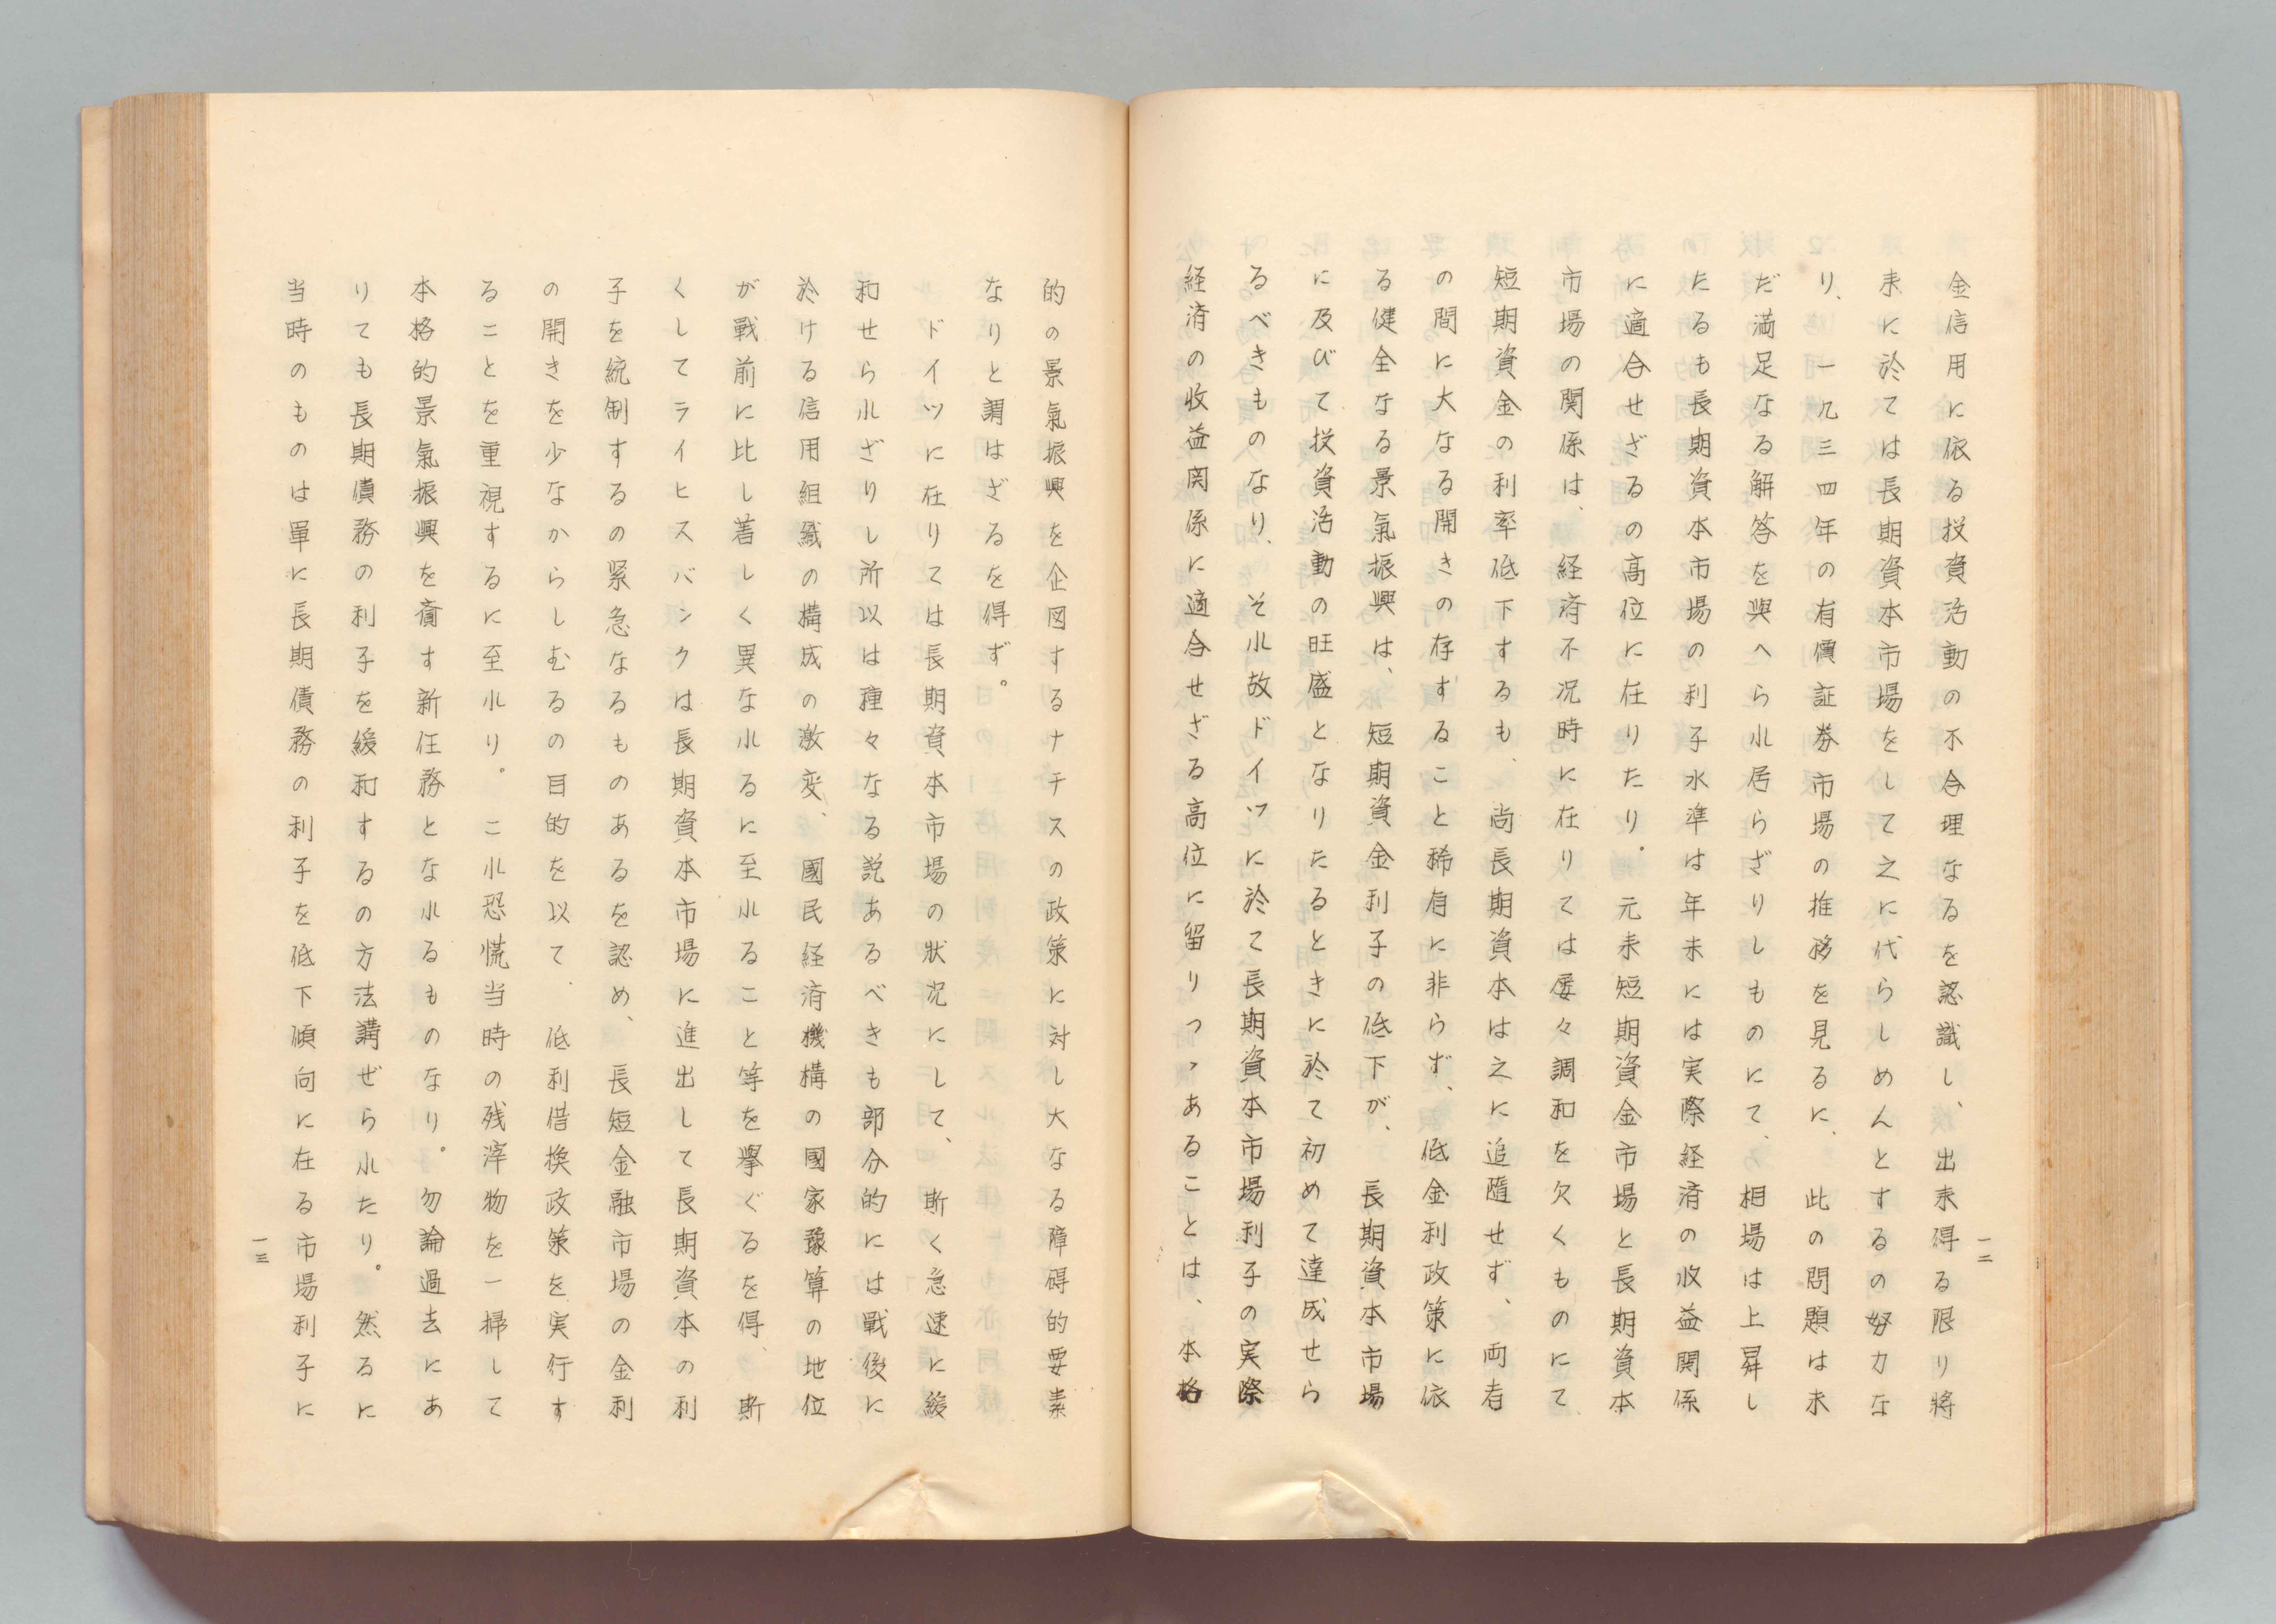 金信用に依る投資活動の不合理なるを認識し、出来得る限り將
来に於ては長期資本市場をして之に代らしめんとするの努力な
り、一九三四年の有價証券市場の推移を見るに、此の問題は未
だ満足なる解答を與へられ居らざりしものにて、相場は上昇し
たるも長期資本市場の利子水準は年末には実際経済の收益関係
に適合せざるの高位に在りたり。元来短期資金市場と長期資本
市場の関係は、経済不況時に在りては屡々調和を欠くものにて、
短期資金の利率低下するも、尚長期資本は之に追隨せず、両者
の間に大なる開きの存すること稀有に非らず、低金利政策に依
る健全なる景氣振興は、短期資金利子の低下が、長期資本市場
に及びて投資活動の旺盛となりたるときに於て初めて達成せら
るべきものなり、それ故ドイツに於て長期資本市場利子の実際
経済の收益関係に適合せざる高位に留りつゝあることは、本格
一二
的の景氣振興を企図するナチスの政策に対し大なる障碍的要素
なりと謂はざるを得ず。
ドイツに在りては長期資本市場の狀況にして、斯く急速に緩
和せられざりし所以は種々なる説あるべきも部分的には戰後に
於ける信用組織の構成の激変、國民経済機構の國家豫算の地位
が戰前に比し著しく異なれるに至れること等を擧ぐるを得、斯
くしてライヒスバンクは長期資本市場に進出して長期資本の利
子を統制するの緊急なるものあるを認め、長短金融市場の金利
の開きを少なからしむるの目的を以て、低利借換政策を実行す
ることを重視するに至れり。これ恐慌当時の残滓物を一掃して
本格的景氣振興を齎す新任務となれるものなり。勿論過去にあ
りても長期債務の利子を緩和するの方法講ぜられたり。然るに
当時のものは單に長期債務の利子を低下傾向に在る市場利子に
一三